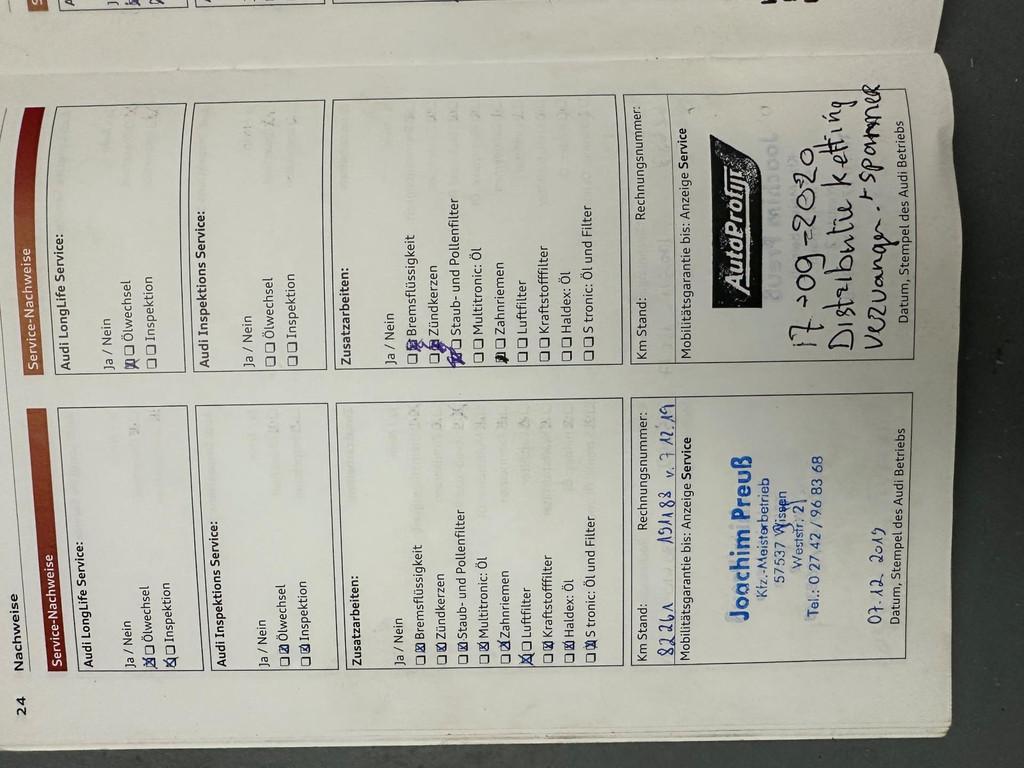 24 Nachweise
Service-Nachweise
Audi LongLife Service:
Ja / Nein
Ölwechsel
Inspektion
Audi Inspektions Service:
Ja / Nein
Ölwechsel
Inspektion
Zusatzarbeiten:
Ja / Nein
Bremsflüssigkeit
Zündkerzen
Staub- und Pollenfilter
Multitronic: Öl
Zahnriemen
Luftfilter
Kraftstofffilter
Haldex: Öl
S tronic: Öl und Filter
Km Stand: Rechnungsnummer:
82261 191188 v. 7.12.19
Mobilitätsgarantie bis: Anzeige Service
Joachim Preuß
Kfz.-Meisterbetrieb
57537 Wissen
Weststr. 21
Tel.: 0 27 42 / 96 83 68
07.12 2019
Datum, Stempel des Audi Betriebs
Service-Nachweise
Audi LongLife Service:
Ja / Nein
Ölwechsel
Inspektion
Audi Inspektions Service:
Ja / Nein
Ölwechsel
Inspektion
Zusatzarbeiten:
Ja / Nein
Bremsflüssigkeit
Zündkerzen
Staub- und Pollenfilter
Multitronic: Öl
Zahnriemen
Luftfilter
Kraftstofffilter
Haldex: Öl
S tronic: Öl und Filter
Km Stand: Rechnungsnummer:
Mobilitätsgarantie bis: Anzeige Service
AutoProfijt
17-09-2020
Distributie ketting
vervangn. + spanner
Datum, Stempel des Audi Betriebs